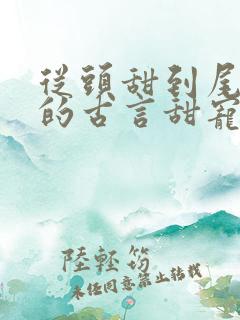 從頭甜到尾
的古言甜寵
陸輕筠
未經同意禁止轉載